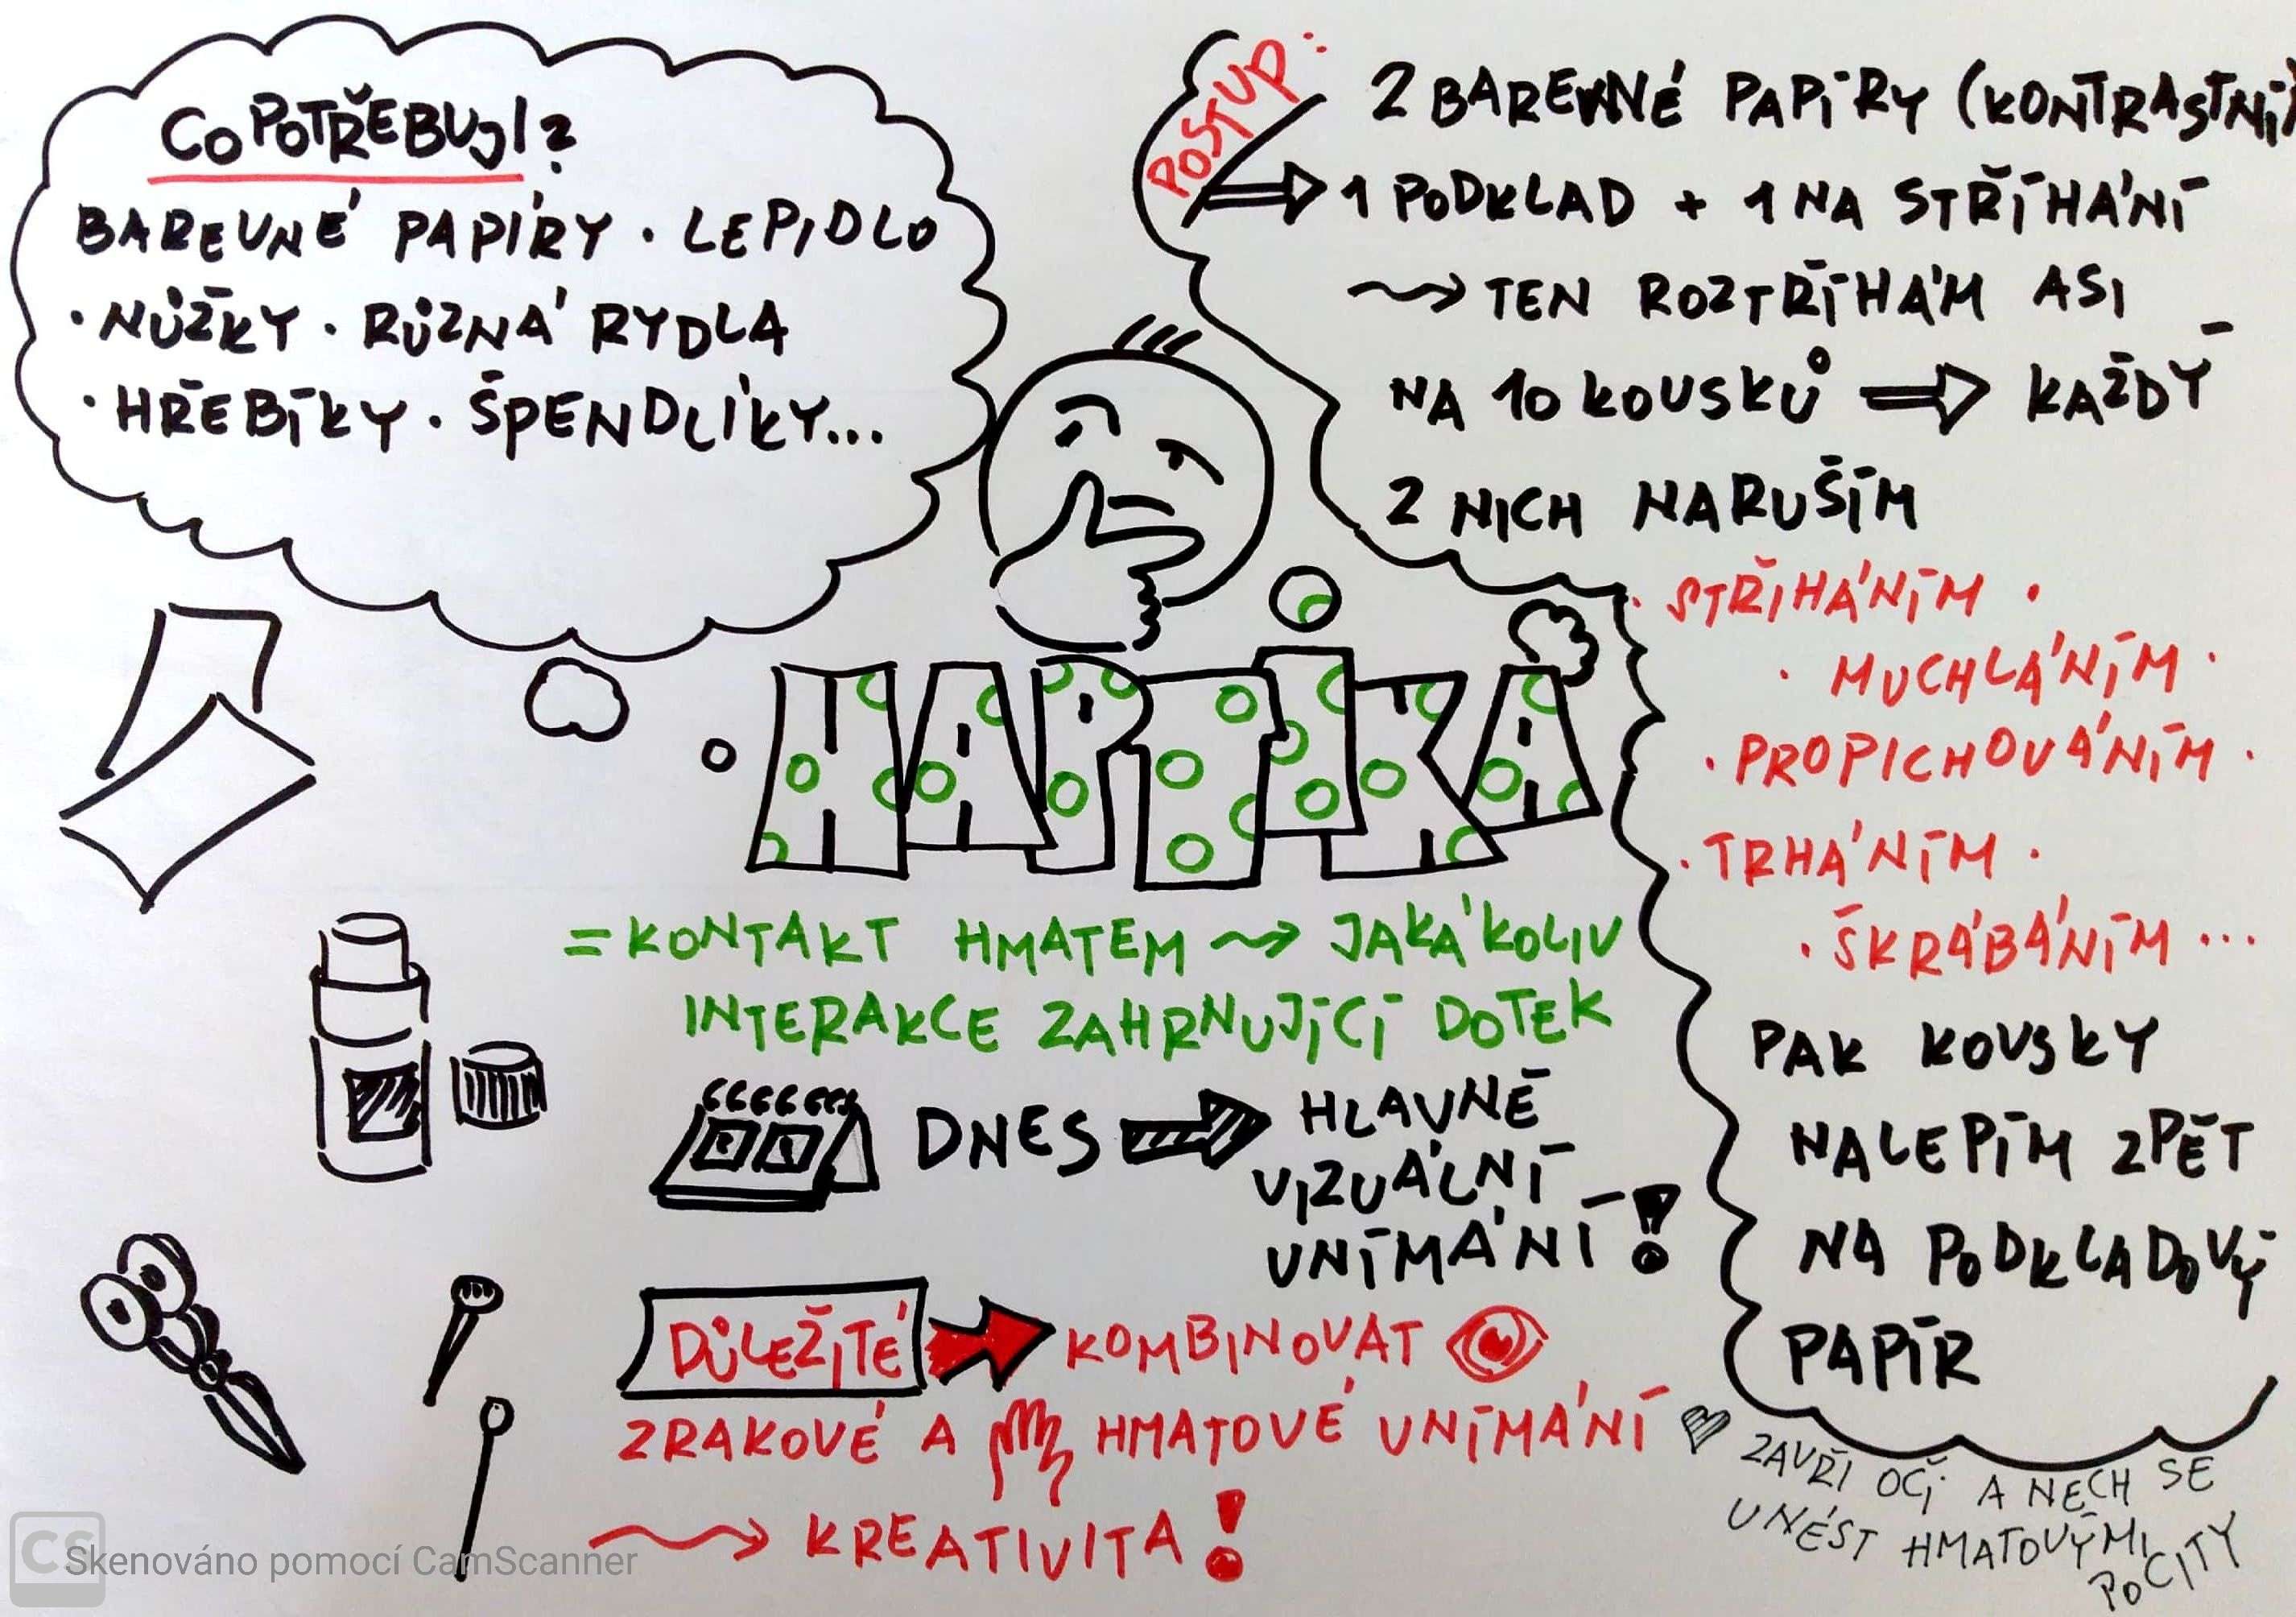 CO POTŘEBUJI?
BAREVNÉ PAPÍRY · LEPIDLO
· NŮŽKY · RŮZNÁ RYDLA
· HŘEBÍKY · ŠPENDLÍKY...
POSTUP:
2 BAREVNÉ PAPÍRY (KONTRASTNÍ)
⇒ 1 PODKLAD + 1 NA STŘÍHÁNÍ
⇝ TEN ROZTŘÍHÁM ASI
NA 10 KOUSKŮ ⇒ KAŽDÝ
Z NICH NARUŠÍM
· STŘÍHÁNÍM ·
· MUCHLÁNÍM ·
· PROPICHOVÁNÍM ·
· TRHÁNÍM ·
· ŠKRÁBÁNÍM ...
PAK KOUSKY
NALEPÍM ZPĚT
NA PODKLADOVÝ
PAPÍR
HAPTIKA
= KONTAKT HMATEM ⇝ JAKÁKOLIV
INTERAKCE ZAHRNUJÍCÍ DOTEK
DNES ⇒ HLAVNĚ
VIZUÁLNÍ
VNÍMÁNÍ !
DŮLEŽITÉ ➔ KOMBINOVAT
ZRAKOVÉ A HMATOVÉ VNÍMÁNÍ
⇝ KREATIVITA !
♥ ZAVŘI OČI A NECH SE
UNÉST HMATOVÝMI
POCITY
CS Skenováno pomocí CamScanner